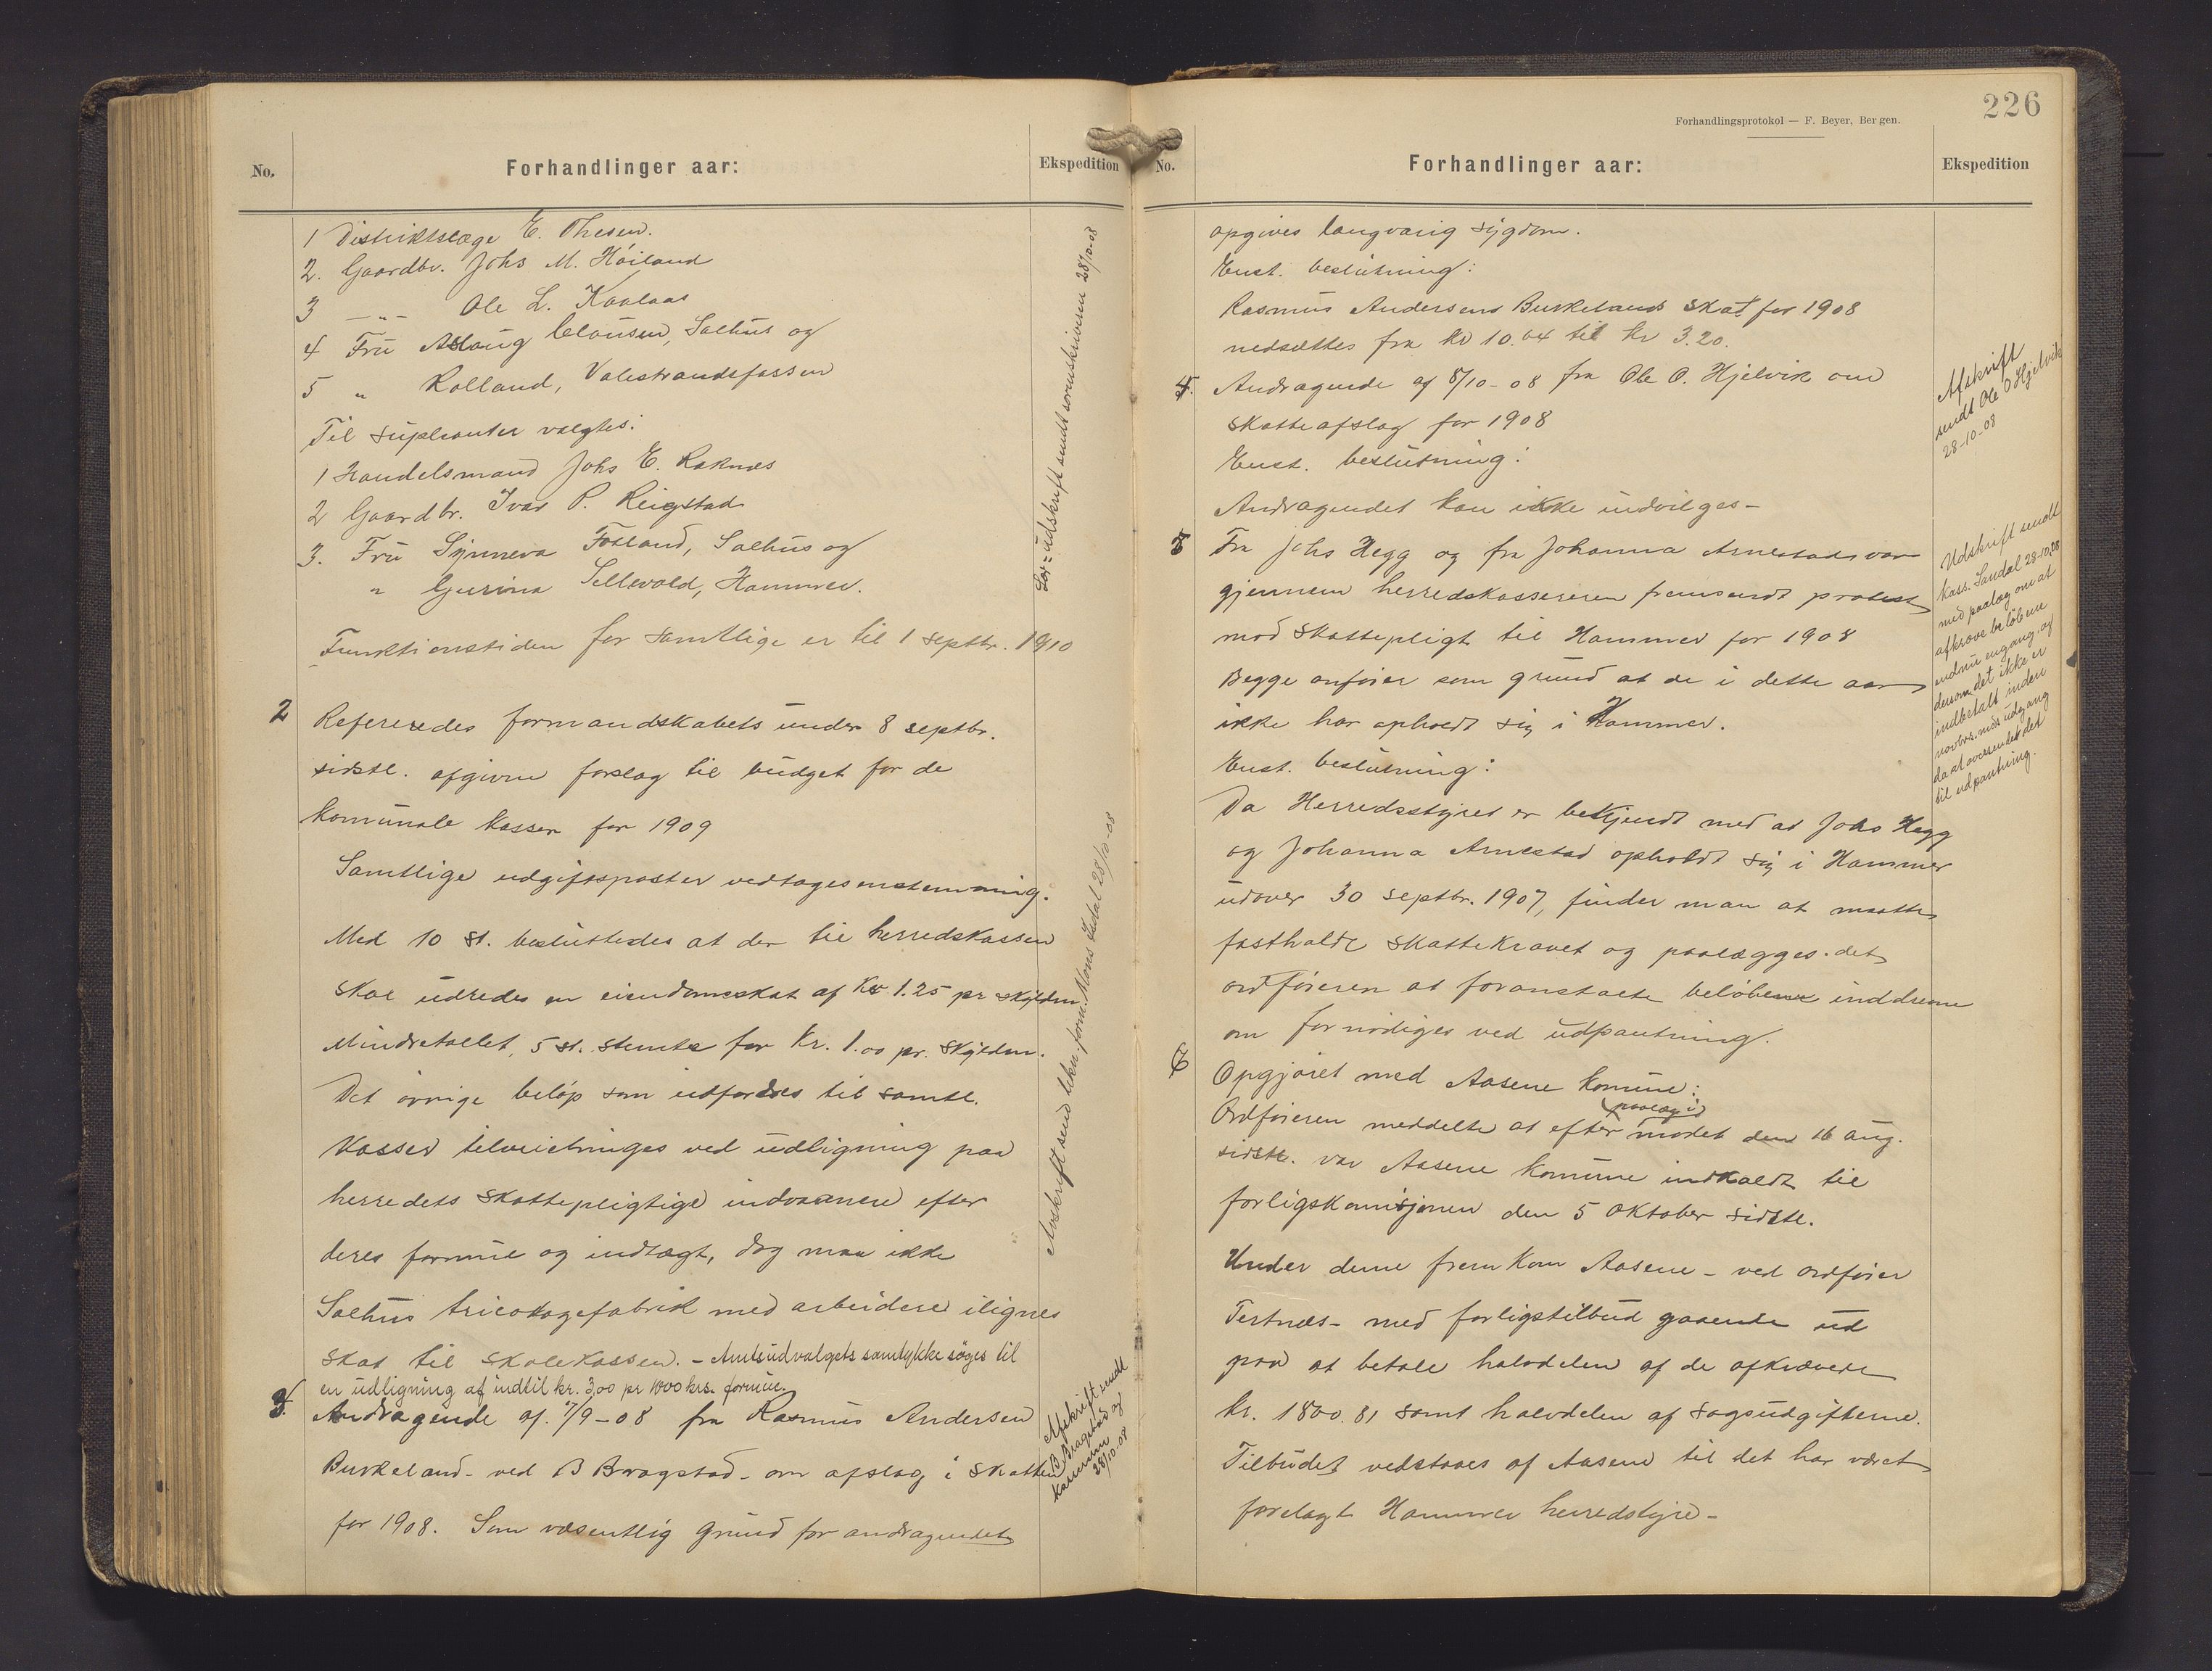 No.
Forhandlinger aar:
Ekspedition
1 Distriktslæge E. Thesen.
2. Gaardbr. Johs M. Høiland
3 -"- Ole L. Kaalaas
4 Fru Aslaug Clausen, Salhus og
5 " Rolland, Valestrandsfossen
Til supleanter valgtes:
1 Handelsmand Johs E. Raknes
2 Gaardbr. Ivar P. Reigstad
3. Fru Synneva Fosland, Salhus og
" Gurina Sellevold, Hammer.
Funktionstiden for samtlige er til 1 septbr. 1910
udskrift sendt sorenskriveren 28/10-08
2 Refereredes formandskabets under 8 septbr.
sidstl. afgivne forslag til budget for de
komunale kasser for 1909
Samtlige udgiftsposter vedtages enstemmig.
Med 10 st. besluttedes at der til herredskassen
skal udredes en eiendomsskat af Kr 1.25 pr skyldm.
Mindretallet, 5 st. stemte for Kr. 1.00 pr. skyldm.
Det øvrige beløp som udfordres til samtl.
Kasser tilveiebringes ved udligning paa
herredets skattepligtige indvaanere efter
deres formue og indtægt, dog maa ikke
Salhus tricotagefabrik med arbeidere ilignes
skat til skolekassen. - Amtsudvalgets samtykke søges til
en udligning af indtil kr. 3,00 pr 1000 krs. formue.
Avskrift send lekn. form. Mons Isdal 28/10-08
3. Andragende af 7/9-08 fra Rasmus Andersen
Burkeland - ved B Bragstad - om afslag i skatten
for 1908. Som væsentlig grund for andragendet
Afskrift sendt
B Bragstad og
kassereren
28/10-08
226
Forhandlingsprotokol — F. Beyer, Bergen.
No.
Forhandlinger aar:
Ekspedition
opgives langvarig sygdom.
Enst. beslutning:
Rasmus Andersens Burkelands skat for 1908
nedsættes fra kr 10.04 til kr 3.20.
4. Andragende af 8/10-08 fra Ole O. Hjelvik om
skatteafslag for 1908
Enst. beslutning:
Andragendet kan ikke indvilges -
Afskrift
sendt Ole O Hjelvik
28-10-08
5 Fra Johs Hegg og fra Johanna Arnestad var
gjennem herredskassereren fremsendt protest
mod skattepligt til Hammer for 1908
Begge anfører som grund at de i dette aar
ikke har opholdt sig i Hammer.
Enst. beslutning:
Da Herredsstyret er bekjendt med at Johs Hegg
og Johanna Arnestad opholdt sig i Hammer
udover 30 septbr. 1907, finder man at maatte
fastholde skattekravet og paalægges det
ordføreren at foranstalte beløbene inddrevne
om fornødiges ved udpantning.
Udskrift sendt
kass. Sandal 28-10-08
med paalæg om at
afkræve beløbene
endnu engang og
dersom det ikke er
indbetalt inden
novbrs. mds udgang
da at oversende det
til udpantning.
6 Opgjøret med Aasene komune:
Ordføreren meddelte at efter paalæg i mødet den 16 aug.
sidstl. var Aasene komune indkaldt til
forligskomisjonen den 5 oktober sidstl.
Under denne fremkom Aasene - ved ordfører
Tertnæs - med forligstilbud gaaende ud
paa at betale halvdelen af de afkrævede
kr. 1800.81 samt halvdelen af sagsudgifterne.
Tilbudet vedstaaes af Aasene til det har været
forelagt Hammer herredstyre -